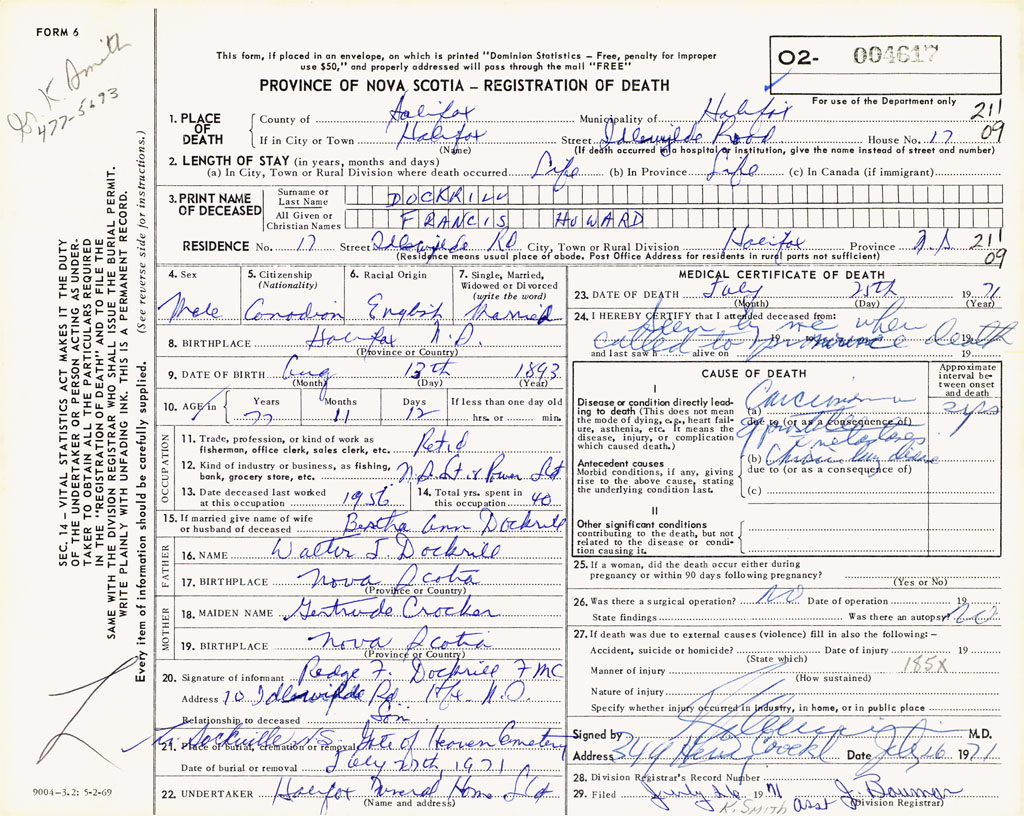 FORM 6
K Smith
477-5693
This form, if placed in an envelope, on which is printed "Dominion Statistics – Free, penalty for improper
use $50," and properly addressed will pass through the mail "FREE"
O2- 004617
PROVINCE OF NOVA SCOTIA – REGISTRATION OF DEATH
For use of the Department only
1. PLACE OF DEATH
County of Halifax Municipality of Halifax 211
If in City or Town Halifax Street Idlewylde Road House No. 17 09
(Name) (If death occurred in a hospital or institution, give the name instead of street and number)
2. LENGTH OF STAY (in years, months and days)
(a) In City, Town or Rural Division where death occurred Life (b) In Province Life (c) In Canada (if immigrant)
3. PRINT NAME OF DECEASED
Surname or Last Name DOCKRILL
All Given or Christian Names FRANCIS HOWARD
RESIDENCE No. 17 Street Idlewylde RD City, Town or Rural Division Halifax Province N.S. 211
(Residence means usual place of abode. Post Office Address for residents in rural parts not sufficient) 09
4. Sex
Male
5. Citizenship
(Nationality)
Canadian
6. Racial Origin
English
7. Single, Married,
Widowed or Divorced
(write the word)
Married
8. BIRTHPLACE Halifax N.S.
(Province or Country)
9. DATE OF BIRTH Aug 13th 1893
(Month) (Day) (Year)
10. AGE in Years Months Days If less than one day old
77 11 12 hrs. or min.
OCCUPATION
11. Trade, profession, or kind of work as
fisherman, office clerk, sales clerk, etc. Ret'd
12. Kind of industry or business, as fishing,
bank, grocery store, etc. N.S. Lt. & Power Ltd
13. Date deceased last worked
at this occupation 1956
14. Total yrs. spent in
this occupation 40
15. If married give name of wife
or husband of deceased Bertha Ann Dockrill
FATHER
16. NAME Walter J. Dockrill
17. BIRTHPLACE Nova Scotia
(Province or Country)
MOTHER
18. MAIDEN NAME Gertrude Crocker
19. BIRTHPLACE Nova Scotia
(Province or Country)
20. Signature of informant F. Dockrill FMC
Address 10 Idlewylde Rd. Hfx N.S.
Relationship to deceased Son
Sackville N.S. Gate of Heaven Cemetery
21. Place of burial, cremation or removal
Date of burial or removal July 27th, 1971
22. UNDERTAKER Halifax Funeral Home Ltd
(Name and address)
MEDICAL CERTIFICATE OF DEATH
23. DATE OF DEATH July 25th 1971
(Month) (Day) (Year)
24. I HEREBY CERTIFY that I attended deceased from:
Seen by me when
19 19
called to pronounce death
and last saw h alive on 19
CAUSE OF DEATH
Approximate interval between onset and death
I
Disease or condition directly leading to death (This does not mean the mode of dying, e.g., heart failure, asthenia, etc. It means the disease, injury, or complication which caused death.)
(a) Carcinoma 3 yrs
due to (or as a consequence of)
of prostate
metastases
Antecedent causes
Morbid conditions, if any, giving rise to the above cause, stating the underlying condition last.
(b) Chronic lung disease
due to (or as a consequence of)
(c)
II
Other significant conditions
contributing to the death, but not related to the disease or condition causing it.
25. If a woman, did the death occur either during
pregnancy or within 90 days following pregnancy?
(Yes or No)
26. Was there a surgical operation? NO Date of operation 19
State findings Was there an autopsy? NO
27. If death was due to external causes (violence) fill in also the following: –
Accident, suicide or homicide? Date of injury 19
(State which)
Manner of injury 185X
(How sustained)
Nature of injury
Specify whether injury occurred in industry, in home, or in public place
Signed by M.D.
Address 349 Herring Cove Rd Date July 26 1971
28. Division Registrar's Record Number
29. Filed July 26 1971 Asst J. Bauman
K. SMITH (Division Registrar)
SEC. 14 – VITAL STATISTICS ACT MAKES IT THE DUTY
OF THE UNDERTAKER OR PERSON ACTING AS UNDER-
TAKER TO OBTAIN ALL THE PARTICULARS REQUIRED
IN THE "REGISTRATION OF DEATH" AND TO FILE THE
SAME WITH THE DIVISION REGISTRAR WHO SHALL ISSUE THE BURIAL PERMIT.
WRITE PLAINLY WITH UNFADING INK. THIS IS A PERMANENT RECORD.
Every item of information should be carefully supplied. (See reverse side for instructions.)
9004-3.2: 5-2-69